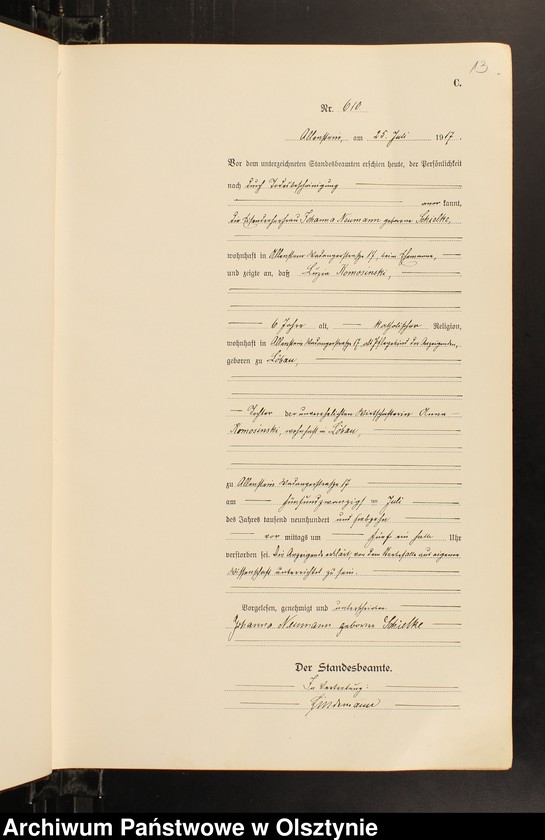 13
C.
Nr. 610
Allenstein, am 25. Juli 1917.
Vor dem unterzeichneten Standesbeamten erschien heute, der Persönlichkeit
nach durch Todesbescheinigung
anerkannt,
die Johanna Neumann geborene Schielke,
wohnhaft in Allenstein Wadangerstraße 17, beim Ehemanne,
und zeigte an, daß Luzia Romosinski,
6 Jahre alt, katholischer Religion,
wohnhaft in Allenstein Wadangerstraße 17 als Pflegekind der Anzeigenden,
geboren zu Löbau,
Tochter der unverehelichten Wirtschafterin Anna
Romosinski, wohnhaft in Löbau,
zu Allenstein Wadangerstraße 17
am fünfundzwanzigsten Juli
des Jahres tausend neunhundert und siebzehn
vormittags um fünf ein halb Uhr
verstorben sei. Die Anzeigende erklärt, von dem Sterbefalle aus eigener
Wissenschaft unterrichtet zu sein.
Vorgelesen, genehmigt und unterschrieben
Johanna Neumann geborene Schielke
Der Standesbeamte.
In Vertretung:
Archiwum Państwowe w Olsztynie